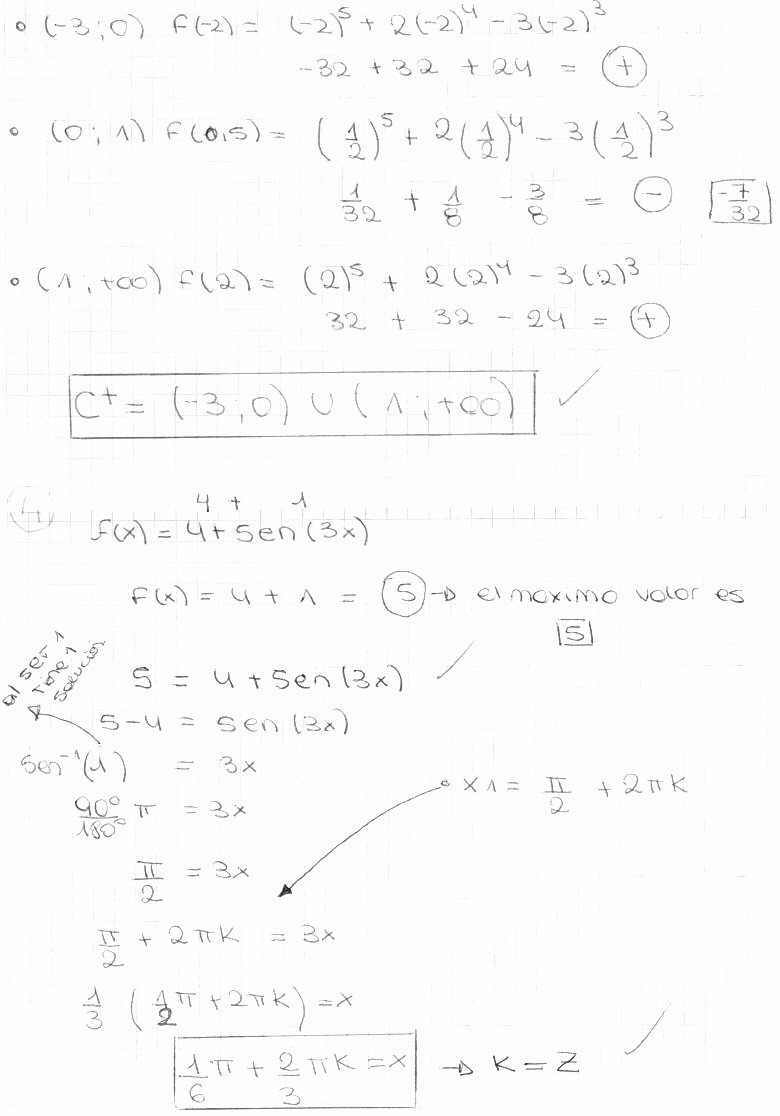 • (-3 ; 0) f(-2) = (-2)⁵ + 2(-2)⁴ - 3(-2)³
-32 + 32 + 24 = (+)
• (0 ; 1) f(0,5) = (1/2)⁵ + 2(1/2)⁴ - 3(1/2)³
1/32 + 1/8 - 3/8 = (-) -7/32
• (1 ; +∞) f(2) = (2)⁵ + 2(2)⁴ - 3(2)³
32 + 32 - 24 = (+)
C⁺ = (-3 ; 0) ∪ (1 ; +∞) ✓
4 + 1
4) f(x) = 4 + sen (3x)
f(x) = 4 + 1 = 5 → el maximo valor es
5
al ser 1
tiene 1
solución
5 = 4 + sen (3x) ✓
5-4 = sen (3x)
sen⁻¹(1) = 3x
• x1 = π/2 + 2πK
90°/180° π = 3x
π/2 = 3x
π/2 + 2πK = 3x
1/3 (1/2 π + 2πK) = x
1/6 π + 2/3 πK = x → K = Z ✓